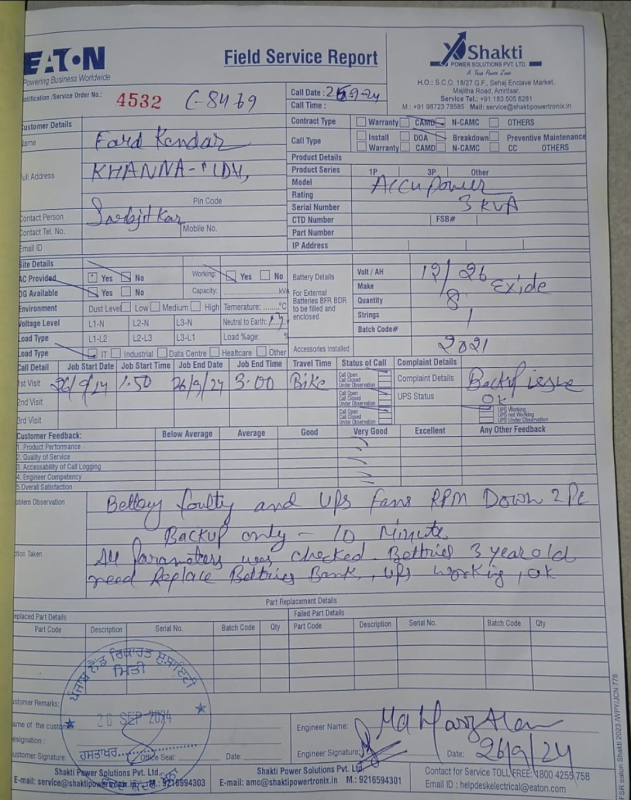 EATON
Powering Business Worldwide
Field Service Report
Shakti
POWER SOLUTIONS PVT. LTD.
A True Power Zone
H.O.: S.C.O. 18/27 G.F., Sehaj Enclave Market,
Majitha Road, Amritsar,
Service Tel.: +91 183 505 8281
M : +91 98723 78585 Mail: service@shaktipowertronix.in
Notification /Service Order No.: 4532 C-8469
Call Date : 26-9-24
Call Time :
Customer Details
Contract Type Warranty CAMC N-CAMC OTHERS
Call Type Install DOA Breakdown Preventive Maintenance
Warranty CAMC N-CAMC CC OTHERS
Name Fard Kendar
Full Address KHANNA-
Pin Code
Contact Person Sarbjit Kar
Contact Tel. No. Mobile No.
Email ID
Product Details
Product Series 1P 3P Other
Model Accu Power
Rating 3 KVA
Serial Number
CTD Number FSB#
Part Number
IP Address
Site Details
AC Provided Yes No Working: Yes No
DG Available Yes No Capacity: kVA
Environment Dust Level Low Medium High Temerature: °C
Voltage Level L1-N L2-N L3-N Neutral to Earth:
Load Type L1-L2 L2-L3 L3-L1 Load %age:
Load Type IT Industrial Data Centre Healtcare Other
Battery Details
For External
Batteries BFR BDR
to be filled and
enclosed
Accessories Installed
Volt / AH 12/26
Make Exide
Quantity 8
Strings 1
Batch Code# 2021
Call Detail Job Start Date Job Start Time Job End Date Job End Time Travel Time Status of Call Complaint Details
1st Visit 26/9/24 1.50 26/9/24 3.00 Bike
Call Open
Call Closed
Under Observation
Complaint Details Backup issue
2nd Visit
Call Open
Call Closed
Under Observation
UPS Status OK
UPS Working
UPS not Working
UPS Under Observation
3rd Visit
Call Open
Call Closed
Under Observation
Customer Feedback: Below Average Average Good Very Good Excellent Any Other Feedback
1. Product Performance
2. Quality of Service
3. Accessability of Call Logging
4. Engineer Competency
5. Overall Satisfaction
Problem Observation Battery faulty and UPS Fans RPM Down 2 Pc
Backup only - 10 Minute
Action Taken All Parameters was checked. Bettries 3 year old
need Replace Bettries Bank, UPS working, OK
Part Replacement Details
Replaced Part Details Failed Part Details
Part Code Description Serial No. Batch Code Qty Part Code Description Serial No. Batch Code Qty
ਪੰਜਾਬ ਲੈਂਡ ਰਿਕਾਰਡ ਸੁਸਾਇਟੀ
ਮਿਤੀ
26 SEP 2024
ਹਸਤਾਖਰ
Customer Remarks:
Name of the customer
Designation :
Customer Signature: Office Seal: Date :
Engineer Name:
Engineer Signature:
Date: 26/9/24
Shakti Power Solutions Pvt. Ltd.
E-mail: service@shaktipowertronix.in M.: 9216594303
Shakti Power Solutions Pvt. Ltd.
E-mail: amc@shaktipowertronix.in M.: 9216594301
Contact for Service TOLL FREE: 1800 4255 758
Email ID : helpdeskelectrical@eaton.com